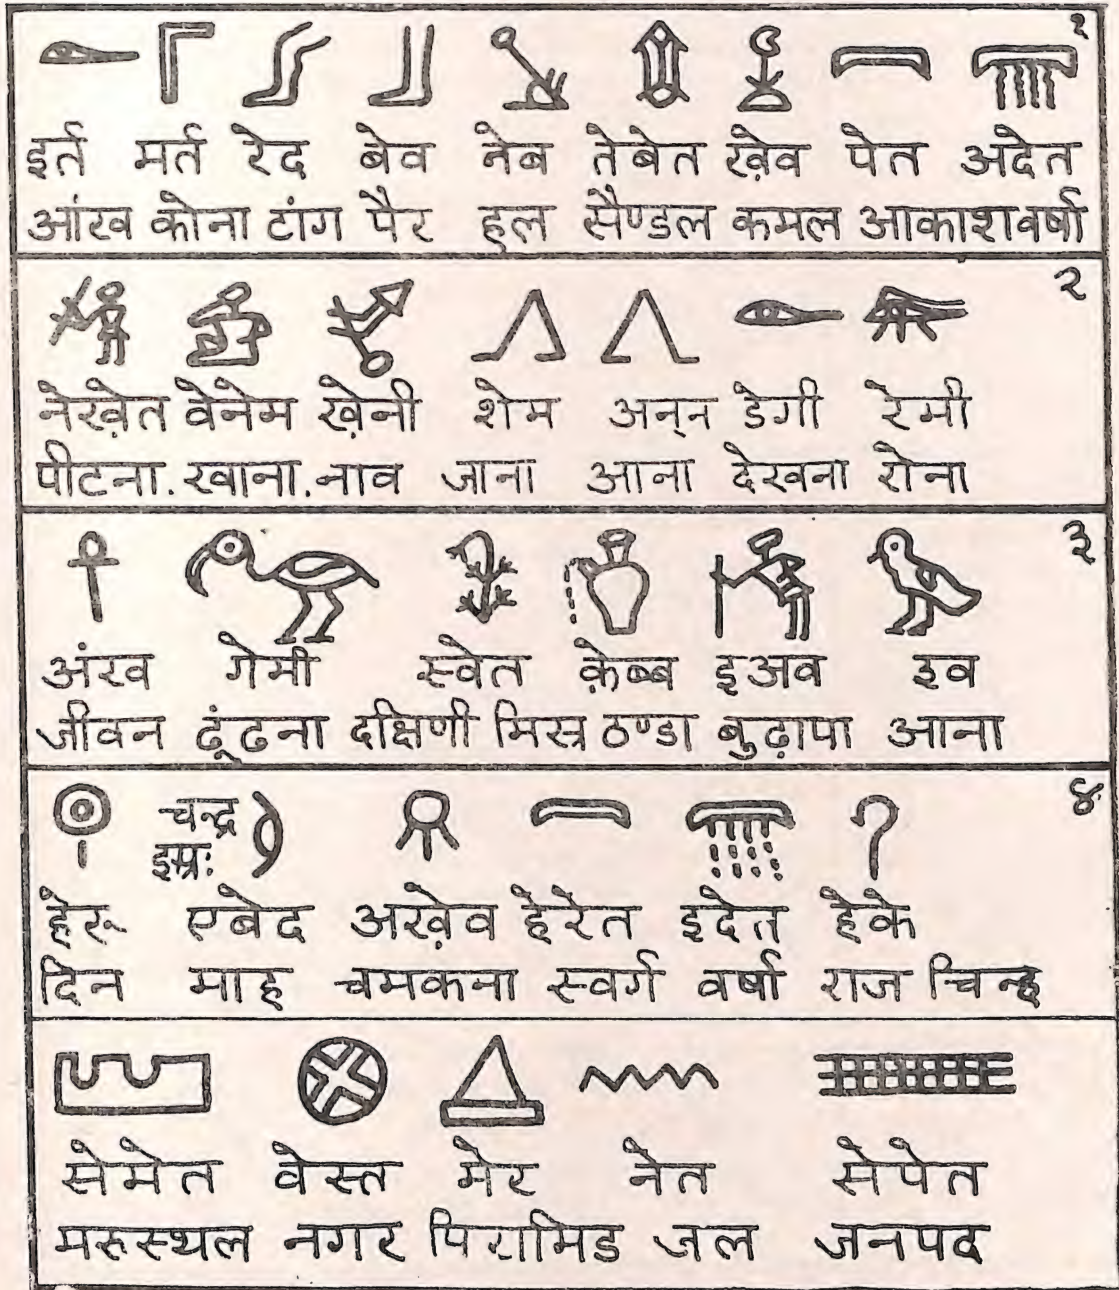 १
इर्त मर्त रेद बेव नेब तेबेत ख़ेव पेत अदेत
आंख कोना टांग पैर हल सैण्डल कमल आकाश वर्षा
२
नेख़ेत वेनेम ख़ेनी शेम अन्न डेगी रेमी
पीटना. खाना. नाव जाना आना देखना रोना
३
अंख गेमी स्वेत क़ेब्ब इअव इव
जीवन ढूंढना दक्षिणी मिस्र ठण्डा बुढ़ापा आना
४
चन्द्र
हेरू एबेद अख़ेव हेरेत इदेत हेके
दिन माह चमकना स्वर्ग वर्षा राज चिन्ह
सेमेत वेस्त मेर नेत सेपेत
मरुस्थल नगर पिरामिड जल जनपद